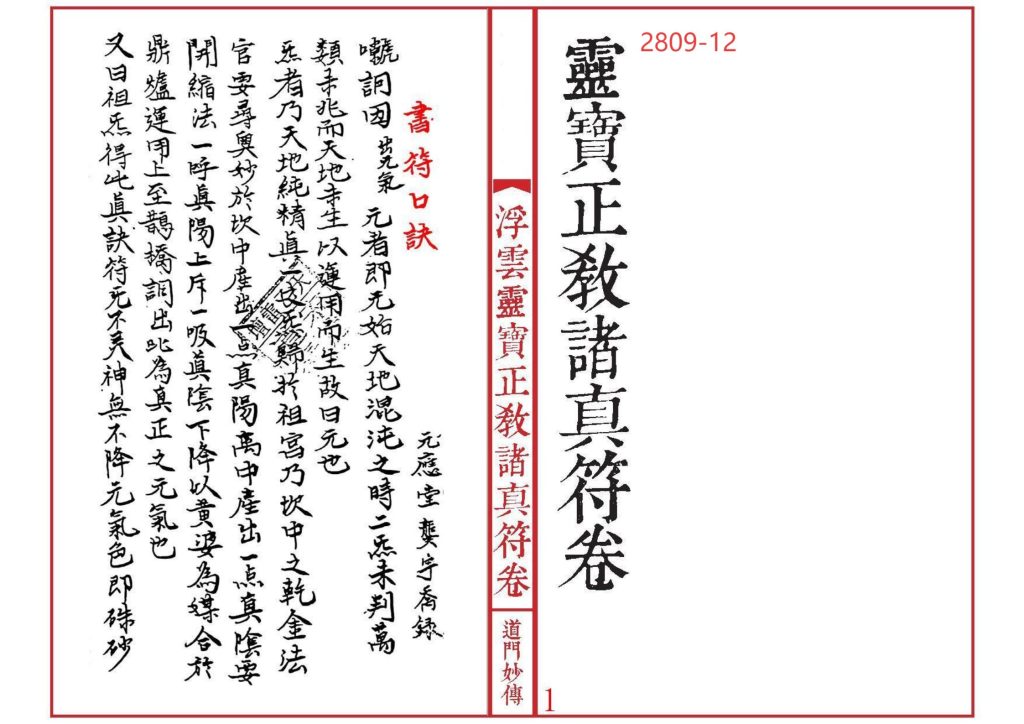 2809-12
靈寶正教諸真符卷
1
浮雲靈寶正教諸真符卷
道門妙傳
書符口訣
元應堂龔宇喬錄
囐詞因出元氣 元者即元始天地混沌之時二炁未判萬
類未兆而天地未生以運用而生故曰元也
炁者乃天地純精真一炁歸於祖宮乃坎中之乾金法
官要尋奧妙於坎中產出一点真陽离中產出一点真陰要
開縮法一呼真陽上斥一吸真陰下降以黄婆為媒合於
鼎爐運用上至鵲橋詞出此為真正之元氣也
又曰祖炁得此真訣符无不灵神無不降元氣色即硃砂